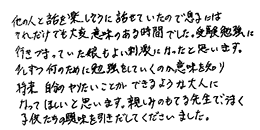 他の人と話を楽しそうに話せていたので息子には
それだけでも大変意味のある時間でした。受験勉強に
行きづまっていた娘もよい刺激になったと思います。
少しずつ何のために勉強をしていくのか意味を知り
将来自分のやりたいことができるような大人に
なってほしいと思います。親しみのもてる先生で
子供たちの興味を引きだしてくださいました。